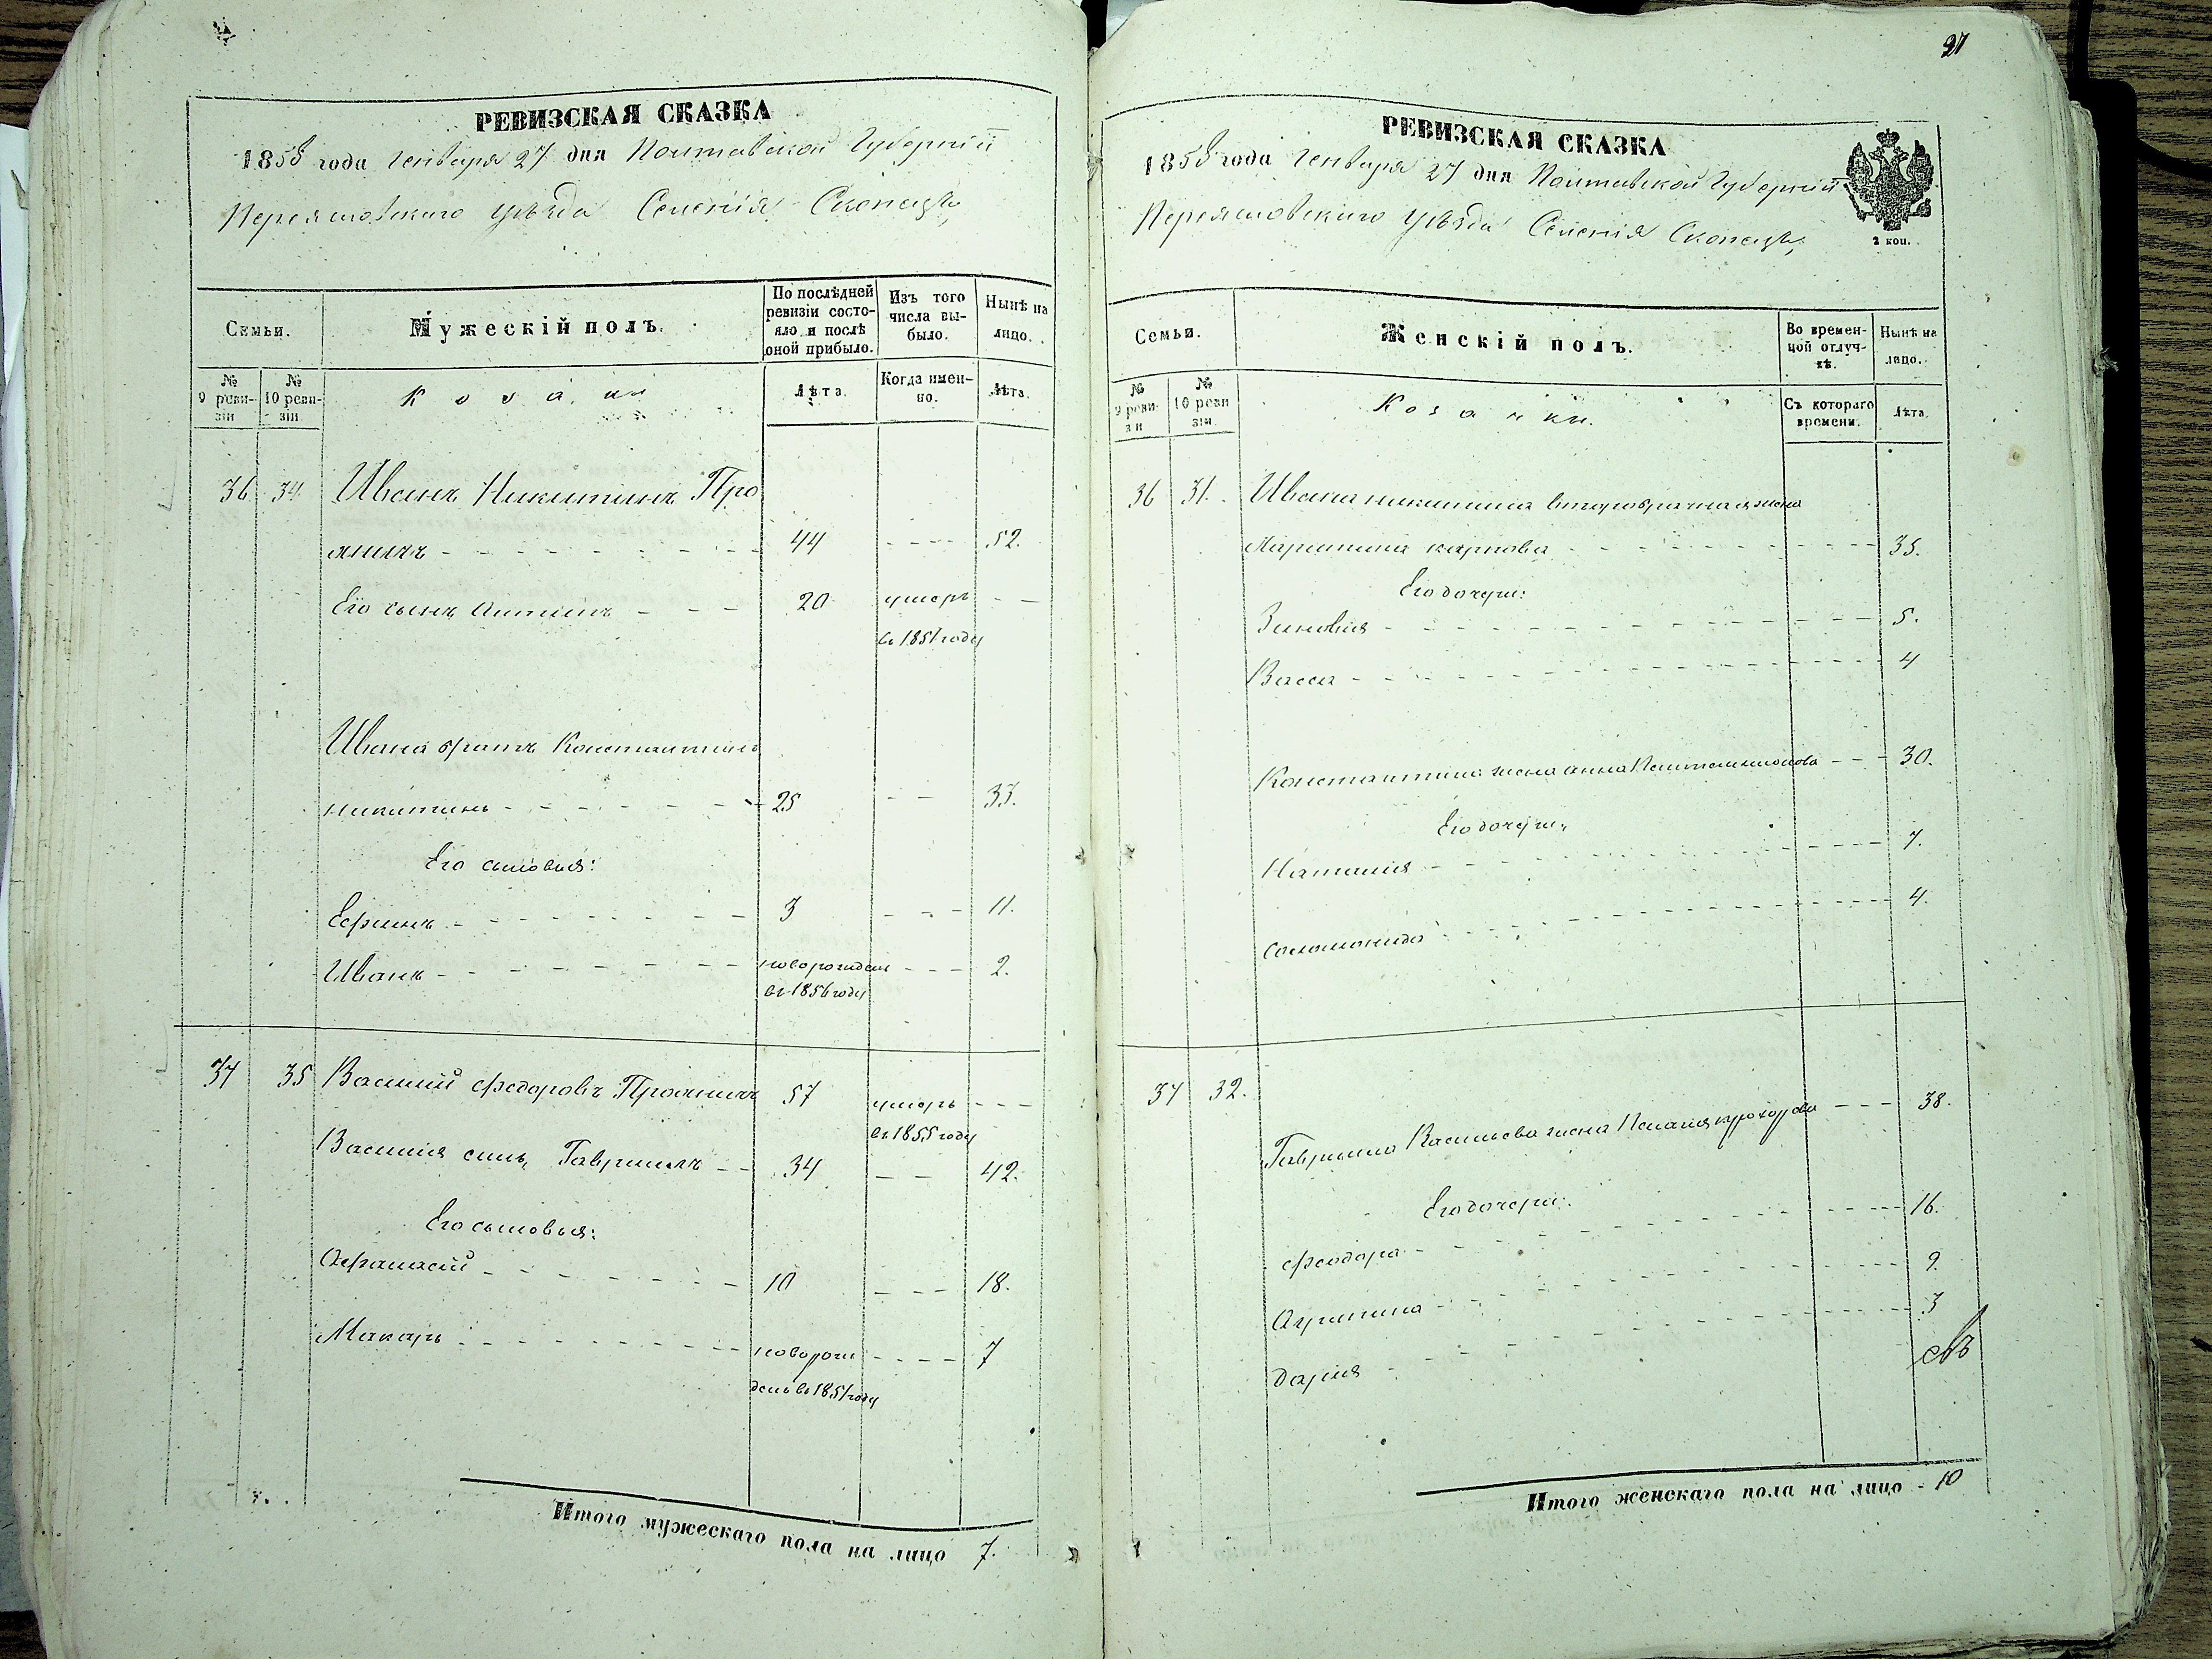 РЕВИЗСКАЯ СКАЗКА
1858 года Генваря 27 дня Полтавской Губерніи
Переяславского уѣзда Селенія Скопецъ,
Семьи.
Мужескій полъ.
По послѣдней ревизіи состояло и послѣ оной прибыло.
Изъ того числа выбыло.
Нынѣ на лицо.
№ 9 ревизіи
№ 10 ревизіи.
Козаки
Лѣта.
Когда именно.
Лѣта.
36 34 Иванъ Никитинъ Про
44 - - - - 52.
Его сынъ Антинъ - - - 20 умеръ - -
въ 1851 году
Ивана братъ Константинъ
Никитинъ - - - - - - 25 - - 33.
Его сыновья:
Ефимъ - - - - - - 3 - - - 11.
Иванъ - - - - - - новорожденъ - - - 2.
въ 1856 году
37 35 Василий Федоровъ 57 умеръ - - -
въ 1855 году
Василія сынъ, Гавриилъ - - 34 - - 42.
Его сыновья:
Афанасій - - - - - - 10 - - - 18.
Макаръ - - - - - - новорож - - - - 7
денъ въ 1851 году
Итого мужескаго пола на лицо 7.
27
РЕВИЗСКАЯ СКАЗКА
1858 года Генваря 27 дня Полтавской Губерніи
Переяславского уѣзда Селенія Скопецъ,
2 коп.
Семьи.
Женскій полъ.
Во временной отлучкѣ.
Нынѣ на лицо.
№ 9 ревизіи
№ 10 ревизіи.
Козачки.
Съ котораго времени.
Лѣта.
36 31. Ивана Никитина второбрачная жена
Карпова - - - - - - 35.
Его дочери:
Зиновия - - - - - - 5.
Васса - - - - - - 4
Константина жена Анна - - - 30.
Его дочери:
Наталия - - - - - - 7.
Соломонида - - - - - - 4.
37 32.
Гавриила Васильева жена Пелагия Прохорова - - - 38.
Его дочери:
Феодора - - - - - - 16.
Агрипина - - - - - - 9.
Дария - - - - - - 3
Итого женскаго пола на лицо - 10